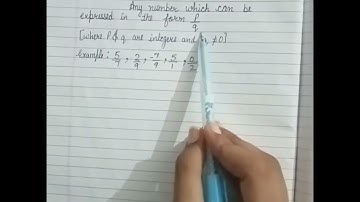 Any number which can be
expressed in the form p/q
[where P & q are integers and q ≠0]
Example: 5/7, 2/9, -7/9, 5/1, 0/2